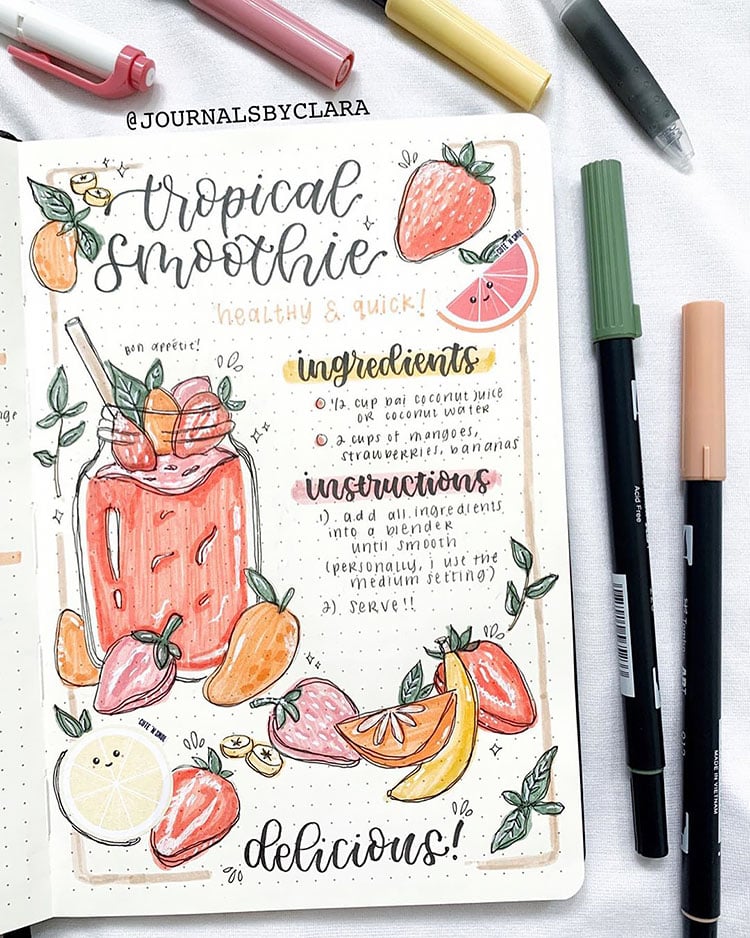 @JOURNALSBYCLARA
tropical
smoothie
healthy & quick!
CUTE 'N SMOL
Bon appétit!
ingredients
1/2 cup bai coconut juice
or coconut water
2 cups of mangoes,
strawberries, bananas
instructions
1). add all ingredients
into a blender
until smooth
(personally, i use the
medium setting)
2). serve!!
CUTE 'N SMOL
delicious!
Acid Free
MADE IN VIETNAM